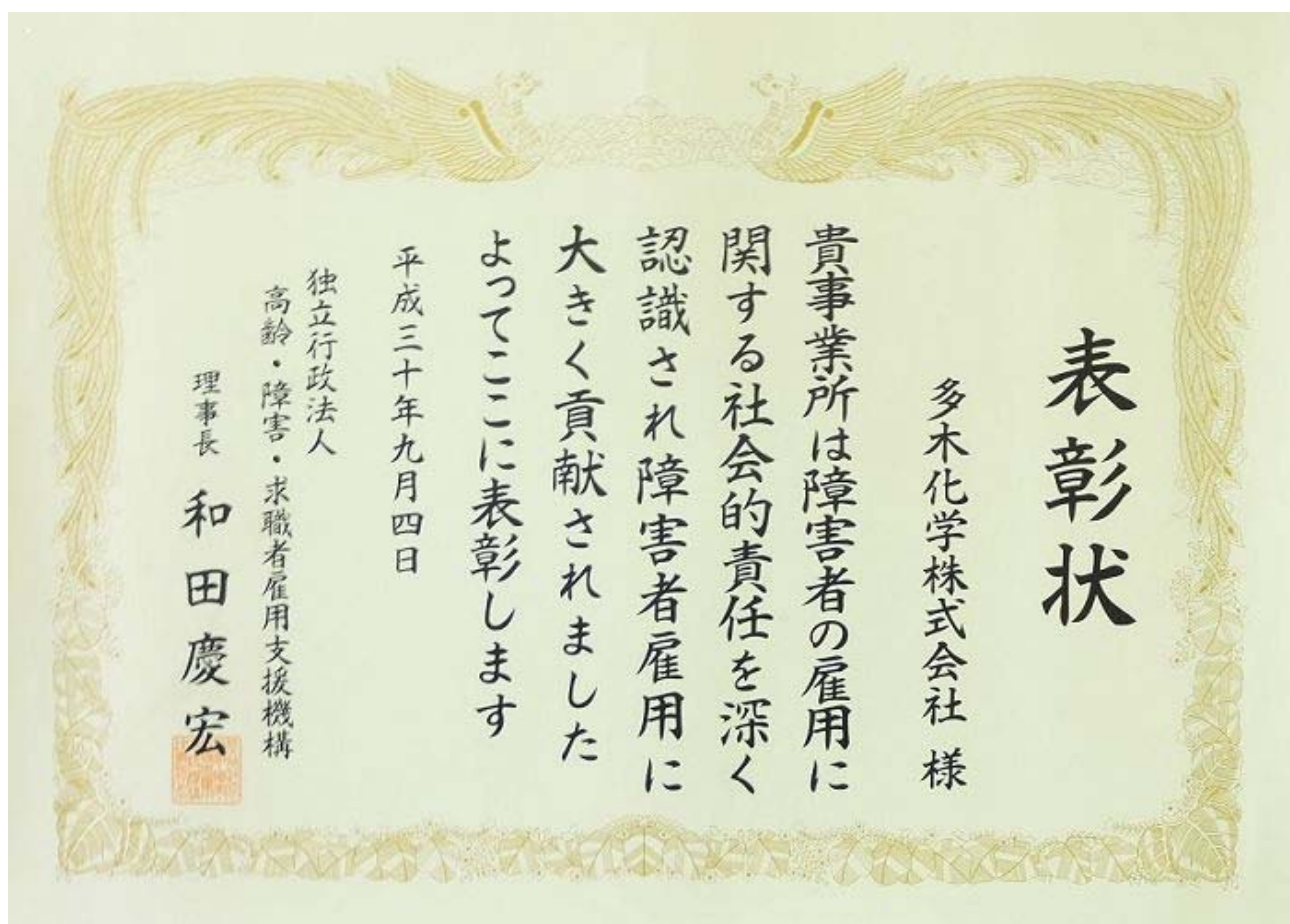 表彰状
多木化学株式会社 様
貴事業所は障害者の雇用に
関する社会的責任を深く
認識され障害者雇用に
大きく貢献されました
よってここに表彰します
平成三十年九月四日
独立行政法人
高齢・障害・求職者雇用支援機構
理事長 和田慶宏